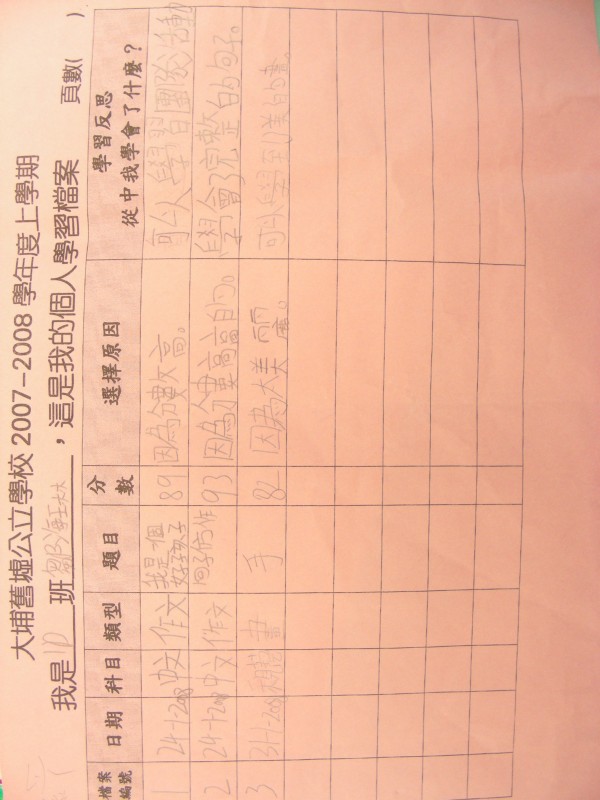 大埔舊墟公立學校 2007-2008 學年度上學期
我是 1D 班 鄒海 ，這是我的個人學習檔案 頁數( )
檔案編號 日期 科目 類型 題目 分數 選擇原因 學習反思 從中我學會了什麼？
1 24-1-2008 中文 作文 我是個好孩子 89 因為分數高。
2 24-1-2008 中文 作文 句子仿作 93 因為分 高 的。 學會了完整的句子。
3 31-1-2008 畫 手 82 因為 美麗。 可以學到